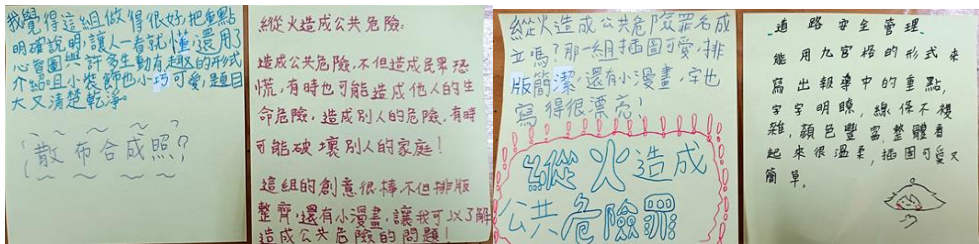 我覺得這組做得很好,把重點
明確說明,讓人一看就懂,還用了
心智圖與許多生動有趣的形式
介紹,且小裝飾也小巧可愛,題目
大又清楚乾淨。
散布合成照?
縱火造成公共危險:
造成公共危險,不但造成民眾恐
慌,有時也可能造成他人的生
命危險,造成別人的危險,有時
可能破壞別人的家庭!
這組的創意很棒不但排版
整齊,還有小漫畫,讓我可以了解
造成公共危險的問題!
縱火造成公共危險罪名成
立嗎?那一組插圖可愛,排
版簡潔,還有小漫畫,字也
寫得很漂亮!
縱火造成
公共危險罪
道路安全管理
能用九宮格的形式來
寫出報導中的重點,
字字明瞭,線條不複
雜,顏色豐富,整體看
起來很溫柔,插圖可愛又
簡單。